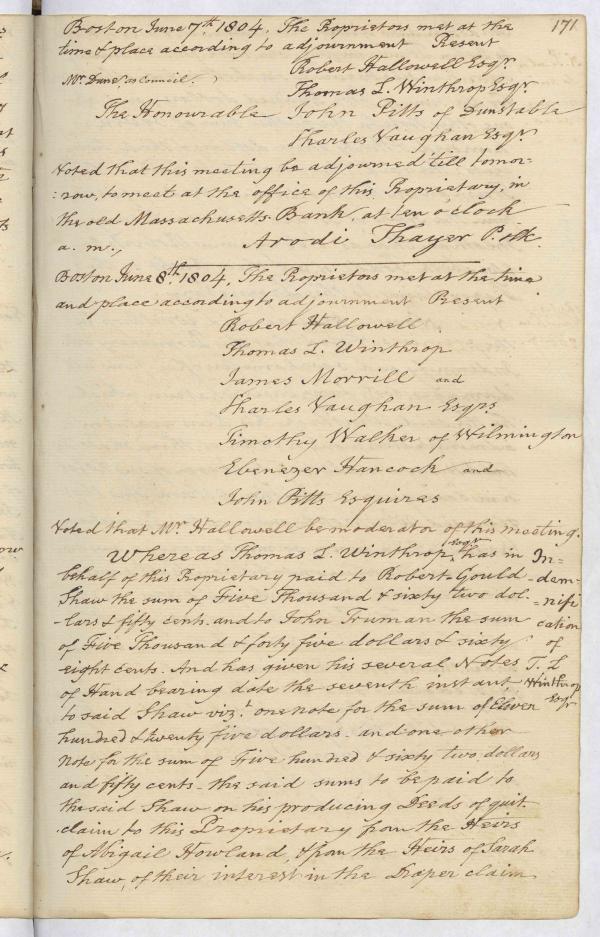 171
Boston June 7th. 1804, The Proprietors met at the
time & place according to adjournment Present
Robert Hallowell Esqr.
Mr. Dane, as Council.
Thomas L. Winthrop Esqr.
The Honourable John Pitts of Dunstable
Charles Vaughan Esqr.
Voted that this meeting be adjourned till tomor-
:row, to meet at the office of this Proprietary, in
the old Massachusetts Bank, at ten o'clock
a. m.,
Arodi Thayer P. Clk.
Boston June 8th. 1804, The Proprietors met at the time
and place according to adjournment Present
Robert Hallowell
Thomas L. Winthrop
James Morrill and
Charles Vaughan Esqrs
Timothy Walker of Wilmington
Ebenezer Hancock and
John Pitts Esquires
Voted that Mr. Hallowell be moderator of this meeting.
Whereas Thomas L. Winthrop Esqr. has in
behalf of this Proprietary paid to Robert Gould
Shaw the sum of Five Thousand & sixty two dol-
-lars & fifty cents. and to John Truman the sum
of Five Thousand & forty five dollars & sixty
eight cents. And has given his several Notes
of Hand bearing date the seventh instant,
to said Shaw vizt. one note for the sum of Eleven
hundred & twenty five dollars. and one other
Note for the sum of Five hundred & sixty two dollars
and fifty cents - the said sums to be paid to
the said Shaw on his producing Deeds of quit-
claim to this Proprietary from the Heirs
of Abigail Howland, & from the Heirs of Sarah
Shaw, of their interest in the Draper claim
In-
-dem-
-nifi
cation
of
T. L
Winthrop
Esqr